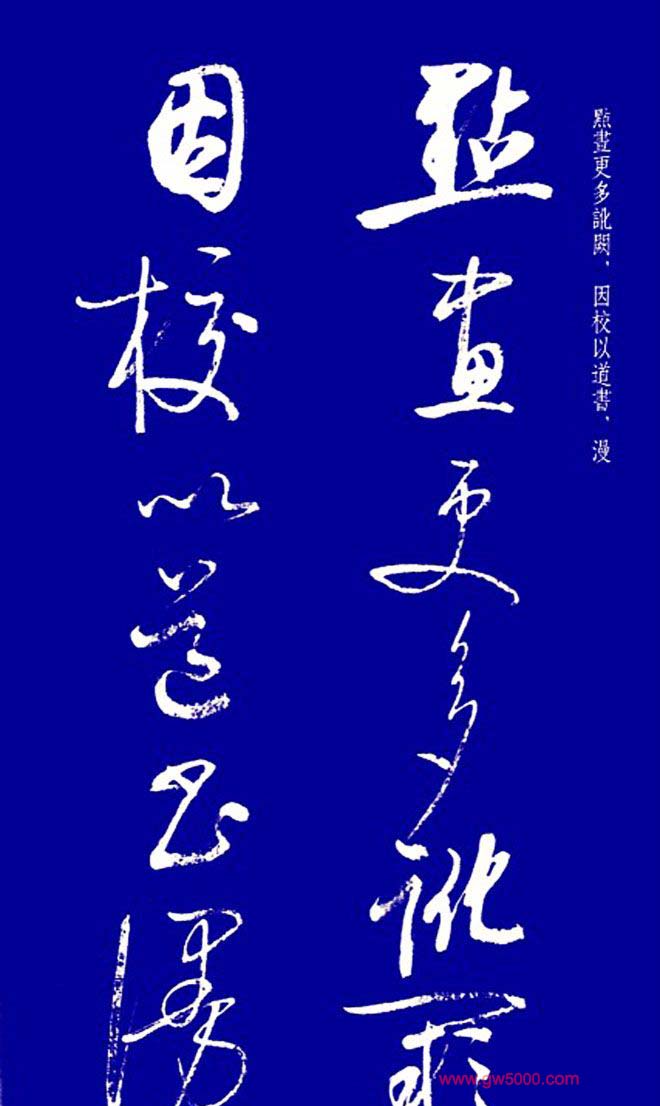 點畫更多訛闕，因校以道書，漫
點畫更多訛闕
因校以道書漫
www.gw5000.com